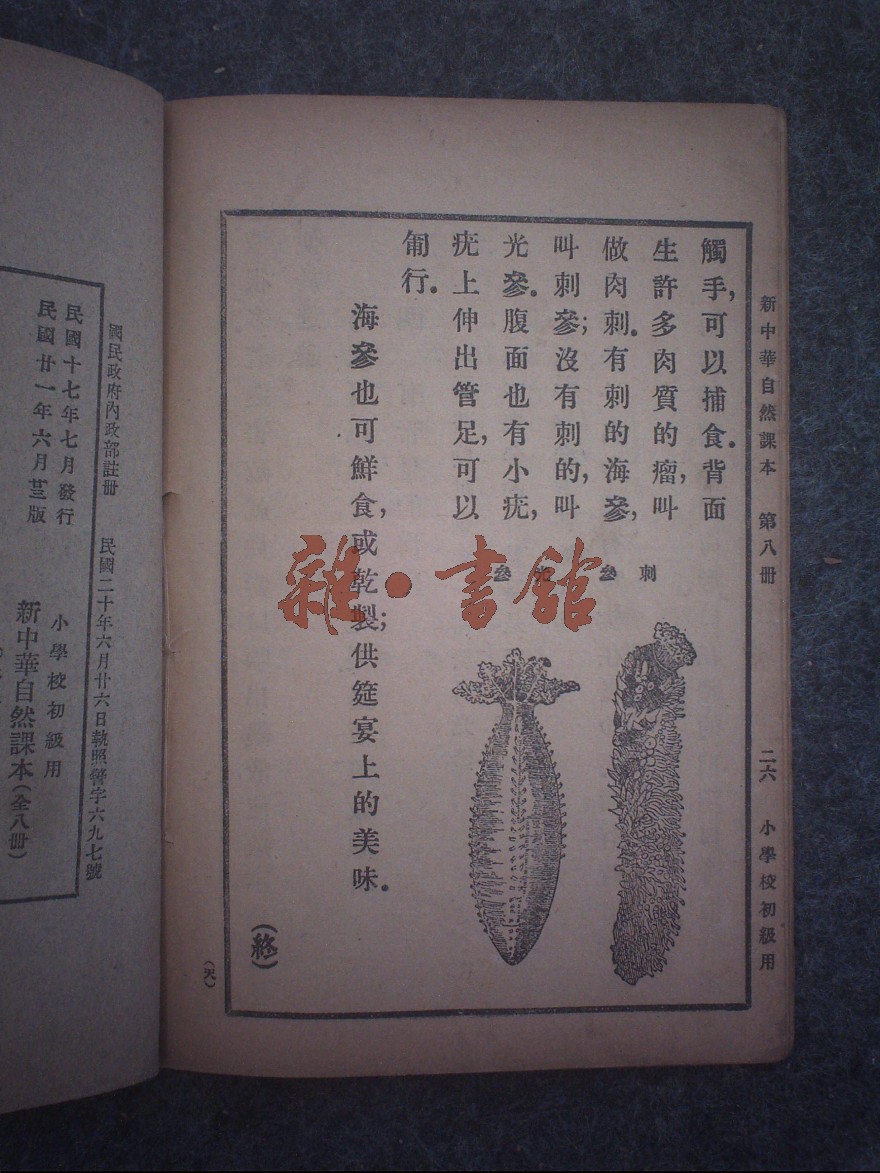 新中華自然課本 第八冊 二六 小學校初級用
觸手,可以捕食。背面
生許多肉質的瘤,叫
做肉刺。有刺的海參,
叫刺參;沒有刺的,叫
光參。腹面也有小疣,
疣上伸出管足,可以
匍行。
海參也可鮮食,或乾製;供筵宴上的美味。
(終)
刺參
參
雜·書館
國民政府內政部註冊 民國二十年六月廿六日執照警字六九七號
民國十七年七月發行
民國廿一年六月廿三版
小學校初級用
新中華自然課本(全八冊)